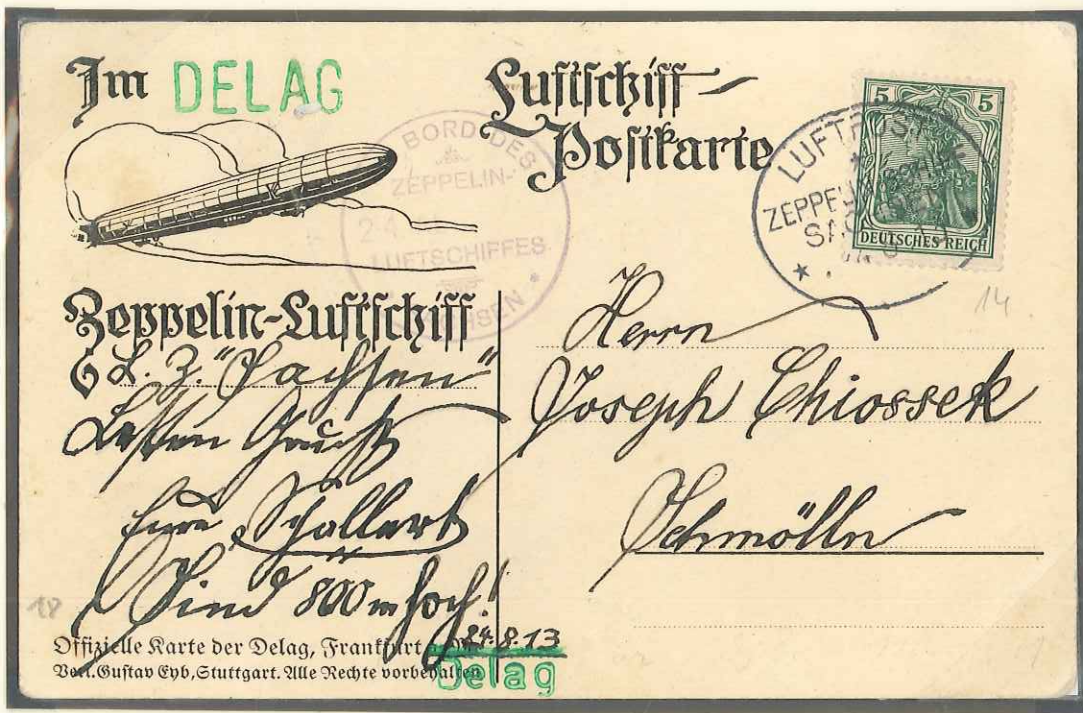 Im DELAG
Luftschiff-
Postkarte
BORD DES
ZEPPELIN-
LUFTSCHIFFES
SACHSEN *
LUFTPOST
ZEPPELIN
5 5
DEUTSCHES REICH
14
Zeppelin-Luftschiff
L. Z. "Sachsen"
Besten Gruß
Eure Schallert
Sind 800 m hoch!
24.8.13
Herrn
Joseph Chiossek
Schmölln
18
Offizielle Karte der Delag, Frankfurt
Verl. Gustav Eyb, Stuttgart. Alle Rechte vorbehalten
Delag